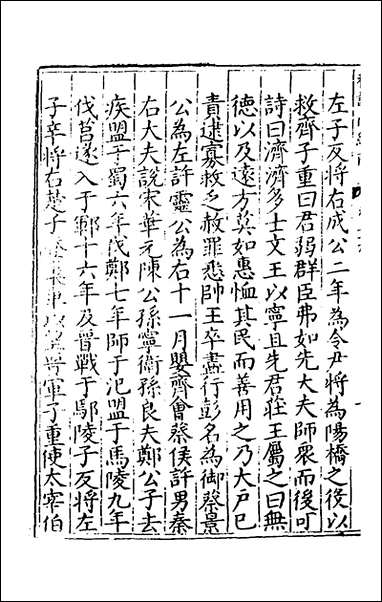 左子反將右成公二年為令尹將為陽橋之役以
救齊子重曰君弱群臣弗如先大夫師衆而後可
詩曰濟濟多士文王以寧且先君莊王屬之曰無
德以及遠方莫如惠恤其民而善用之乃大戸已
責逮寡救乏赦罪悉師王卒盡行彭名為御蔡景
公為左許靈公為右十一月嬰齊會蔡侯許男秦
右大夫説宋華元陳公孫寧衞孫良夫鄭公子去
疾盟于蜀六年伐鄭七年師于汜盟于馬陵九年
伐莒遂入于鄆十六年及晉戰于鄢陵子反將左
子辛將右楚子登巢車以望晉軍子重使太宰伯